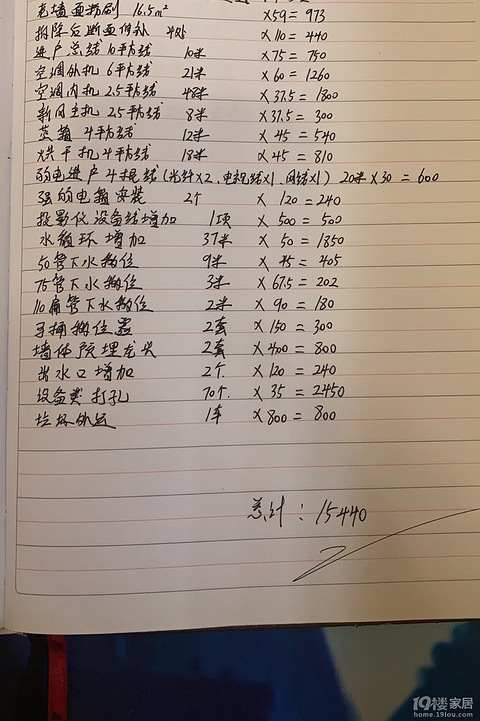 老墙面粉刷 16.5m² ×59=973
拆除后断面修补 4处 ×110=440
进户总线10平方线 10米 ×75=750
空调外机 6平方线 21米 ×60=1260
空调内机 2.5平方线 48米 ×37.5=1800
新风主机 2.5平方线 8米 ×37.5=300
蒸箱 4平方线 12米 ×45=540
烘干机4平方线 18米 ×45=810
弱电进户4根线(光纤×2、电视线×1、网线×1) 20米×30=600
强弱电箱安装 2个 ×120=240
投影仪设备线增加 1项 ×500=500
水循环增加 37米 ×50=1850
50管下水挪位 9米 ×45=405
75管下水挪位 3米 ×67.5=202
110扁管下水挪位 2米 ×90=180
马桶挪位器 2套 ×150=300
墙体预埋龙头 2套 ×400=800
出水口增加 2个 ×120=240
设备类打孔 70个 ×35=2450
垃圾外运 1车 ×800=800
总计:15440
19楼家居
home.19lou.com